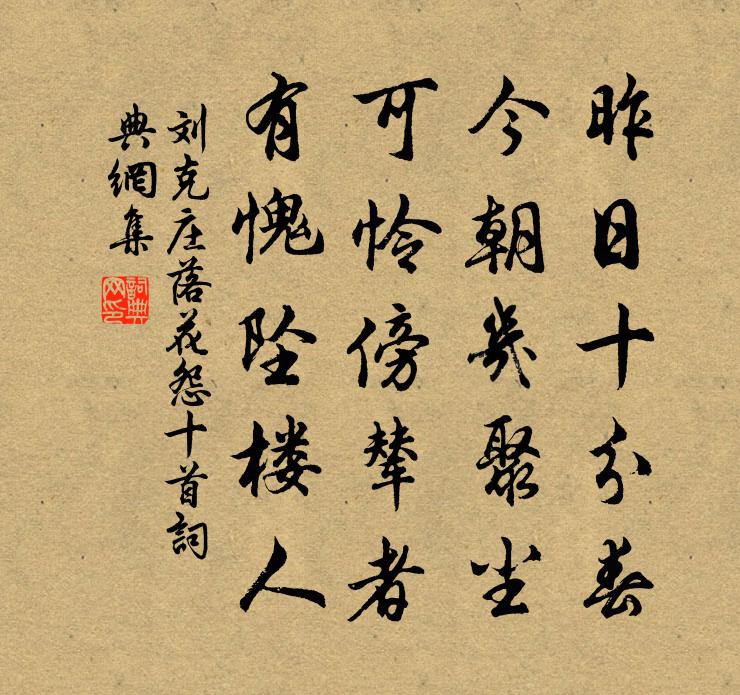 昨日十分春
今朝几聚尘
可怜傍辇者
有愧坠楼人
刘克庄落花怨十首詞
典網集
詞典网印